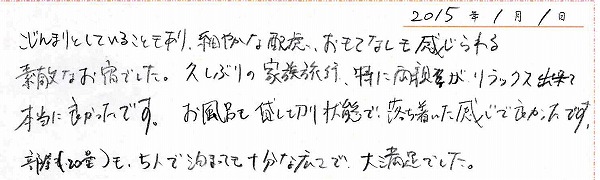 2015年 1月 1日
こじんまりとしていることも有り、細やかな配慮、おもてなしも感じられる
素敵なお宿でした。久しぶりの家族旅行、特に両親がリラックス出来て
本当に良かったです。お風呂も貸し切り状態で、落ち着いた感じで良かったです。
部屋(20畳)も、5人で泊まっても十分な広さで、大満足でした。